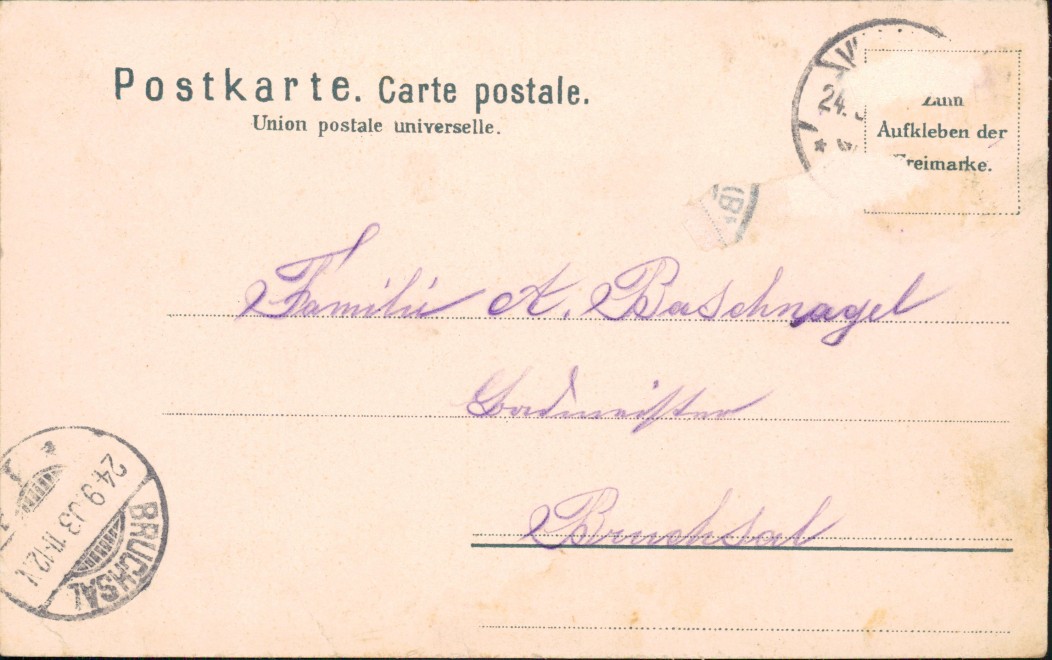 Postkarte. Carte postale.
Union postale universelle.
24.
Zum
Aufkleben der
Freimarke.
(B
Familie A. Baschnagel
Bademeister
Bruchsal
24.9.03.11-12.V.
BRUCHSAL